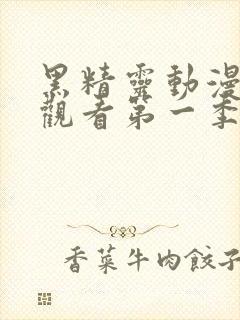 黑精靈動漫
觀看第一季
香菜牛肉餃子